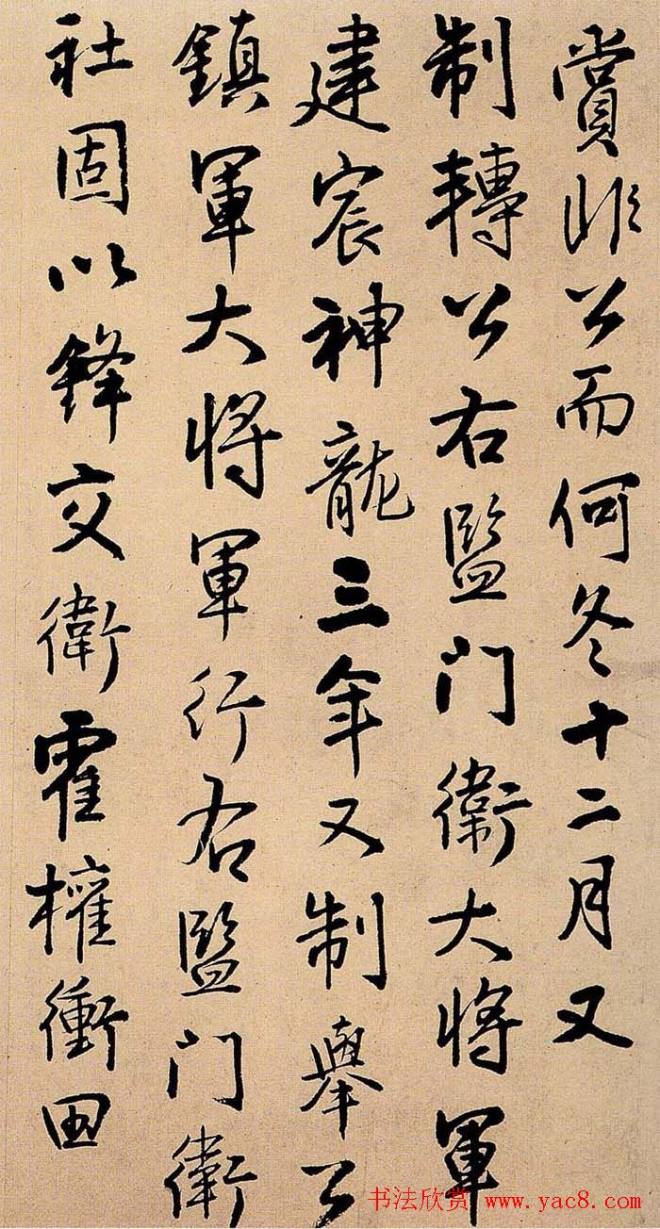 賞非公而何冬十二月又
制轉公右監門衛大將軍
建宸神龍三年又制舉公
鎮軍大將軍行右監門衛
社固以鋒交衛霍權衡田
书法欣赏 www.yac8.com